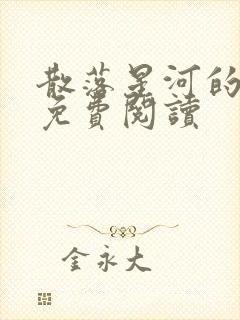 散落星河的
免費閱讀
金永大